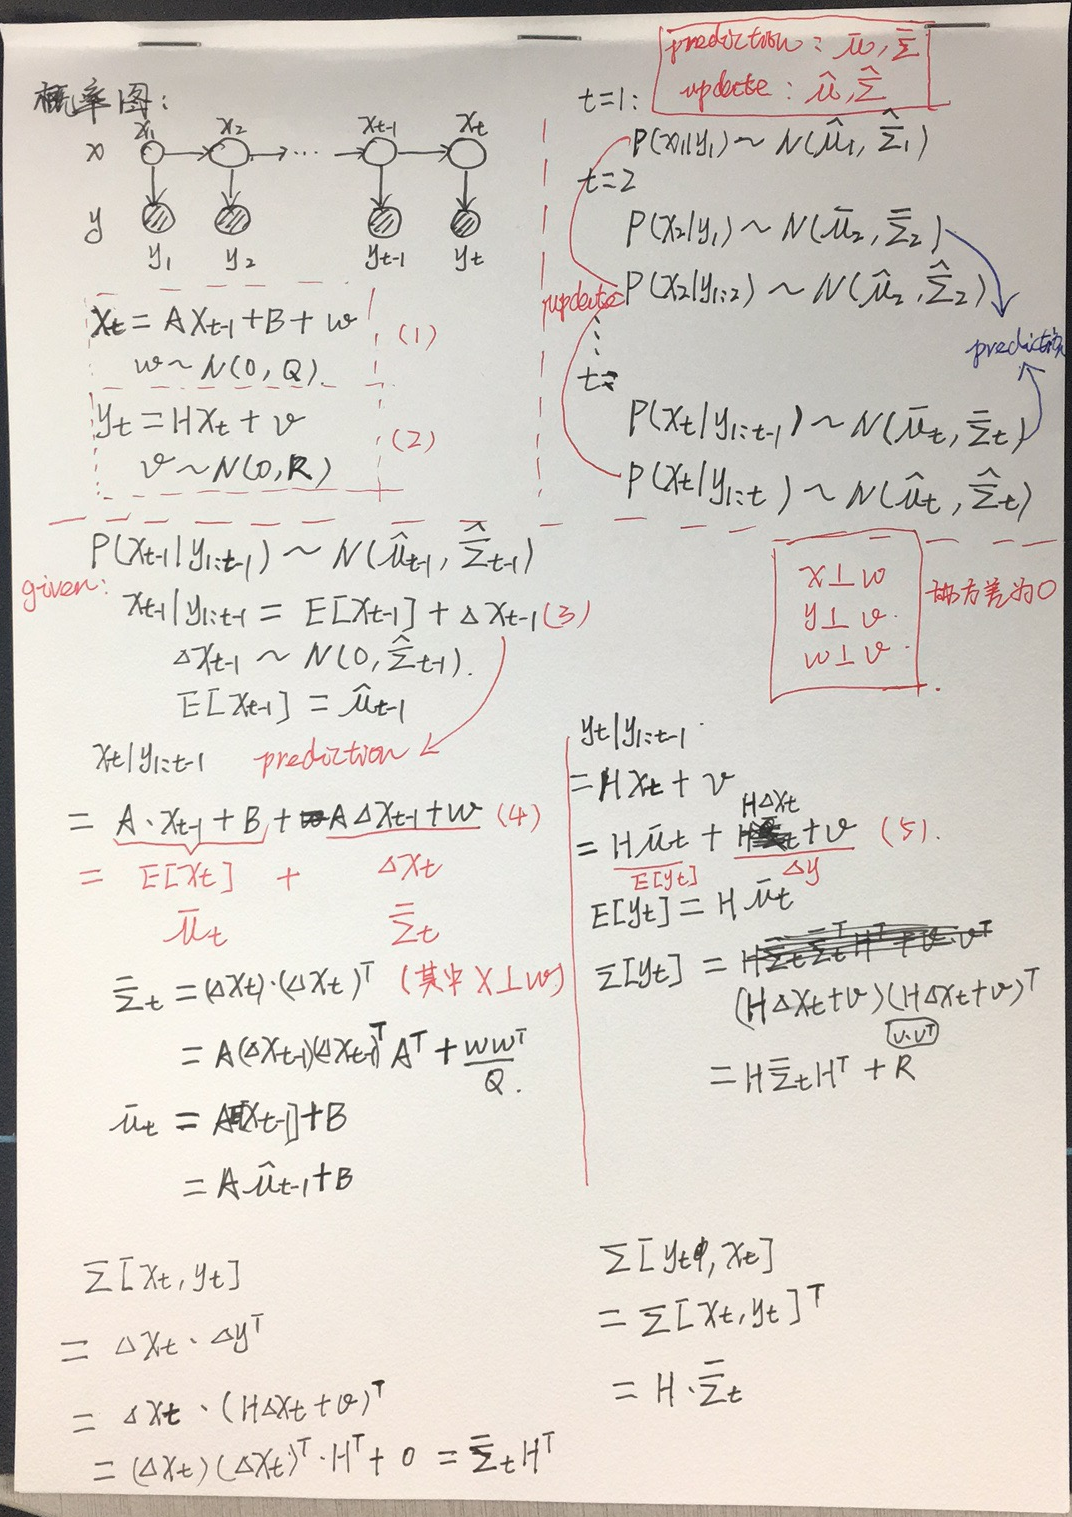 概率图:
x x₁ x₂ ... xt-1 xt
y
y₁ y₂ yt-1 yt
xt = Axt-1 + B + w
w ~ N(0, Q)
(1)
yt = Hxt + v
v ~ N(0, R)
(2)
prediction: μ̄, Σ̄
update: μ̂, Σ̂
t=1:
P(x₁|y₁) ~ N(μ̂₁, Σ̂₁)
t=2
P(x₂|y₁) ~ N(μ̄₂, Σ̄₂)
update P(x₂|y₁:₂) ~ N(μ̂₂, Σ̂₂)
prediction
t=
P(xt|y1:t-1) ~ N(μ̄t, Σ̄t)
P(xt|y1:t) ~ N(μ̂t, Σ̂t)
P(xt-1|y1:t-1) ~ N(μ̂t-1, Σ̂t-1)
given:
xt-1|y1:t-1 = E[xt-1] + Δxt-1 (3)
Δxt-1 ~ N(0, Σ̂t-1).
E[xt-1] = μ̂t-1
x⊥w
y⊥v.
w⊥v.
协方差为0
xt|y1:t-1 prediction
= A·xt-1 + B + AΔxt-1 + w (4)
= E[xt] + Δxt
μ̄t Σ̄t
Σ̄t = (Δxt)·(Δxt)ᵀ (其中x⊥w)
= A(Δxt-1)(Δxt-1)ᵀAᵀ + wwᵀ
Q.
μ̄t = AE[xt-1] + B
= Aμ̂t-1 + B
yt|y1:t-1
= Hxt + v
HΔxt
= Hμ̄t + + v (5).
E[yt] Δy
E[yt] = Hμ̄t
Σ[yt] =
(HΔxt+v)(HΔxt+v)ᵀ
v·vᵀ
= HΣ̄tHᵀ + R
Σ[xt, yt]
= Δxt·Δyᵀ
= Δxt·(HΔxt+v)ᵀ
= (Δxt)(Δxt)ᵀ·Hᵀ + 0 = Σ̄tHᵀ
Σ[yt, xt]
= Σ[xt, yt]ᵀ
= H·Σ̄t